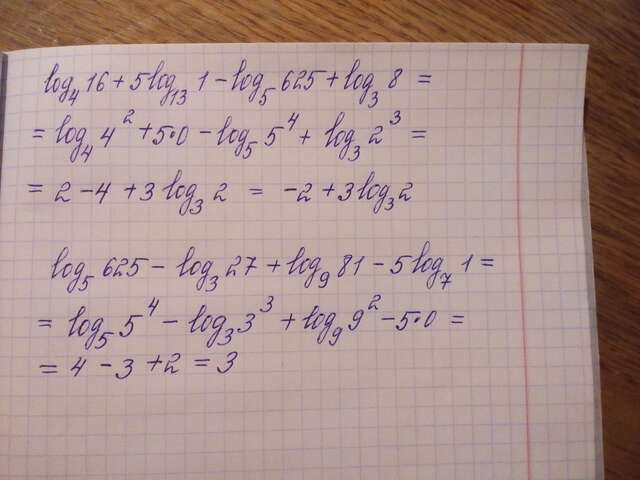 log₄16 + 5log₁₃ 1 - log₅ 625 + log₃ 8 =
= log₄ 4² + 5·0 - log₅ 5⁴ + log₃ 2³ =
= 2 - 4 + 3 log₃ 2 = -2 + 3 log₃ 2
log₅ 625 - log₃ 27 + log₉ 81 - 5 log₇ 1 =
= log₅ 5⁴ - log₃ 3³ + log₉ 9² - 5·0 =
= 4 - 3 + 2 = 3